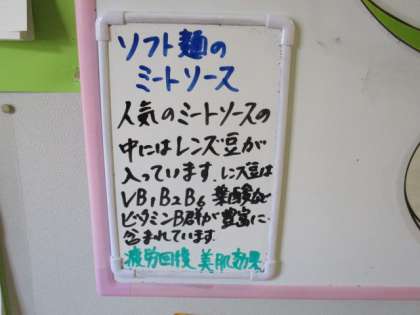 ソフト麺の
ミートソース
人気のミートソースの
中にはレンズ豆が
入っています。レンズ豆は
VB1B2B6 葉酸など
ビタミンB群が豊富に
含まれています。
疲労回後 美肌効果